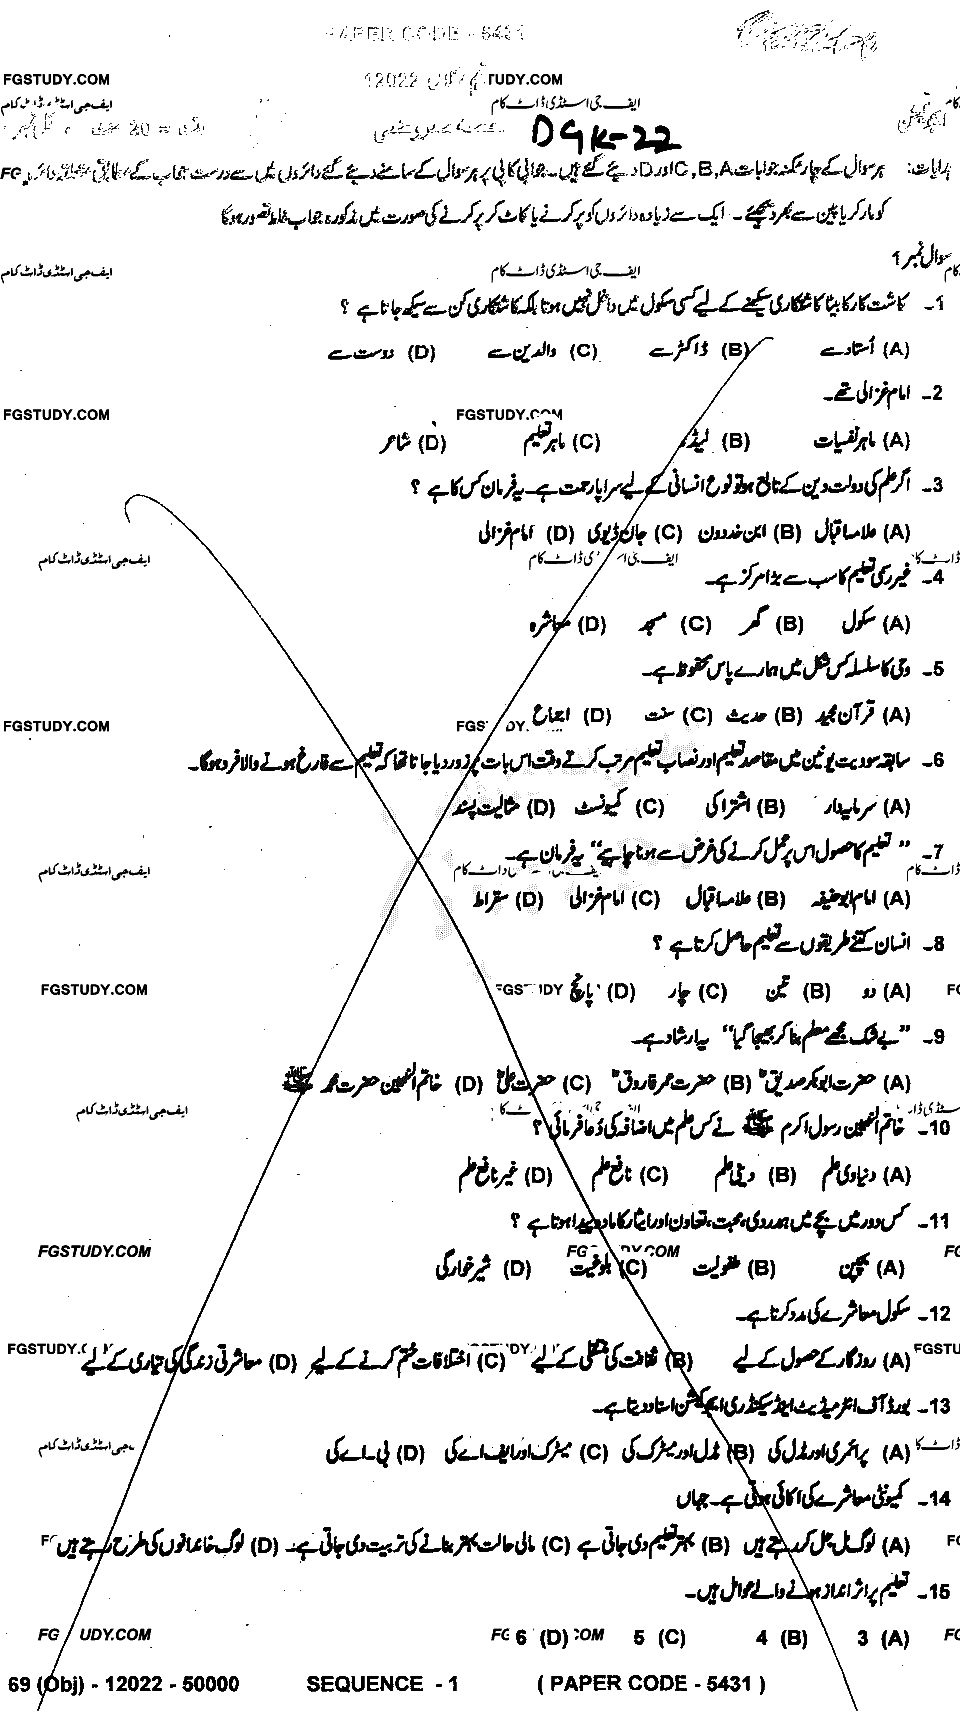 PAPER CODE - 5431
12022
FGSTUDY.COM
ایف جی اسٹڈی ڈاٹ کام ایف جی اسٹڈی ڈاٹ کام
DGK-22
ہر سوال کے چار ممکنہ جوابات C,B,A اور D دیئے گئے ہیں۔ جوابی کاپی پر ہر سوال کے سامنے دیئے گئے دائروں میں سے درست جواب کے مطابق متعلقہ دائرہ
کو مارکر یا پین سے بھر دیجئے۔ ایک سے زیادہ دائروں کو پُر کرنے یا کاٹ کر پُر کرنے کی صورت میں مذکورہ جواب غلط تصور ہوگا
سوال نمبر 1
ایف جی اسٹڈی ڈاٹ کام ایف جی اسٹڈی ڈاٹ کام
1۔ کاشت کار کا بیٹا کاشتکاری سیکھنے کے لیے کسی سکول میں داخل نہیں ہوتا بلکہ کاشتکاری کن سے سیکھ جاتا ہے ؟
(A) اُستاد سے (B) ڈاکٹر سے (C) والدین سے (D) دوست سے
2۔ امام غزالی تھے۔
FGSTUDY.COM FGSTUDY.COM
(A) ماہر نفسیات (B) لیڈر (C) ماہر تعلیم (D) شاعر
3۔ اگر علم کی دولت دین کے تابع ہو تو نوع انسانی کے لیے سراپا رحمت ہے۔ یہ فرمان کس کا ہے ؟
(A) علامہ اقبال (B) ابن خلدون (C) جان ڈیوی (D) امام غزالی
ایف جی اسٹڈی ڈاٹ کام
4۔ غیر رسمی تعلیم کا سب سے بڑا مرکز ہے۔
(A) سکول (B) گھر (C) مسجد (D) معاشرہ
5۔ وحی کا سلسلہ کس شکل میں ہمارے پاس محفوظ ہے۔
(A) قرآن مجید (B) حدیث (C) سنت (D) اجماع
FGSTUDY.COM
6۔ سابقہ سوویت یونین میں مقاصد تعلیم اور نصاب تعلیم مرتب کرتے وقت اس بات پر زور دیا جاتا تھا کہ تعلیم سے فارغ ہونے والا فرد ہوگا۔
(A) سرمایہ دار (B) اشتراکی (C) کمیونسٹ (D) مثالیت پسند
7۔ ”تعلیم کا حصول اس پر عمل کرنے کی غرض سے ہونا چاہیے“ یہ فرمان ہے۔
ایف جی اسٹڈی ڈاٹ کام
(A) امام ابو حنیفہ (B) علامہ اقبال (C) امام غزالی (D) سقراط
8۔ انسان کتنے طریقوں سے تعلیم حاصل کرتا ہے ؟
(A) دو (B) تین (C) چار (D) پانچ
FGSTUDY.COM
9۔ ”بے شک مجھے معلم بنا کر بھیجا گیا“ یہ ارشاد ہے۔
(A) حضرت ابوبکر صدیقؓ (B) حضرت عمر فاروقؓ (C) حضرت علیؓ (D) خاتم النبیین حضرت محمد ﷺ
ایف جی اسٹڈی ڈاٹ کام
10۔ خاتم النبیین رسول اکرم ﷺ نے کس علم میں اضافہ کی دُعا فرمائی ؟
(A) دنیاوی علم (B) دینی علم (C) نافع علم (D) غیر نافع علم
11۔ کس دور میں بچے میں ہمدردی، محبت، تعاون اور ایثار کا مادہ پیدا ہوتا ہے ؟
FGSTUDY.COM
(A) بچپن (B) طفولیت (C) بلوغیت (D) شیر خوارگی
12۔ سکول معاشرے کی مدد کرتا ہے۔
(A) روزگار کے حصول کے لیے (B) ثقافت کی منتقلی کے لیے (C) اختلافات ختم کرنے کے لیے (D) معاشرتی زندگی کی تیاری کے لیے
13۔ بورڈ آف انٹرمیڈیٹ اینڈ سیکنڈری ایجوکیشن اسناد دیتا ہے۔
(A) پرائمری اور مڈل کی (B) مڈل اور میٹرک کی (C) میٹرک اور ایف اے کی (D) بی۔اے کی
14۔ کمیونٹی معاشرے کی اکائی ہوتی ہے۔ جہاں
(A) لوگ مل جل کر رہتے ہیں (B) بہتر تعلیم دی جاتی ہے (C) مالی حالت بہتر بنانے کی تربیت دی جاتی ہے۔ (D) لوگ خاندانوں کی طرح رہتے ہیں
15۔ تعلیم پر اثر انداز ہونے والے عوامل ہیں۔
(A) 3 (B) 4 (C) 5 (D) 6
69 (Obj) - 12022 - 50000 SEQUENCE - 1 ( PAPER CODE - 5431 )